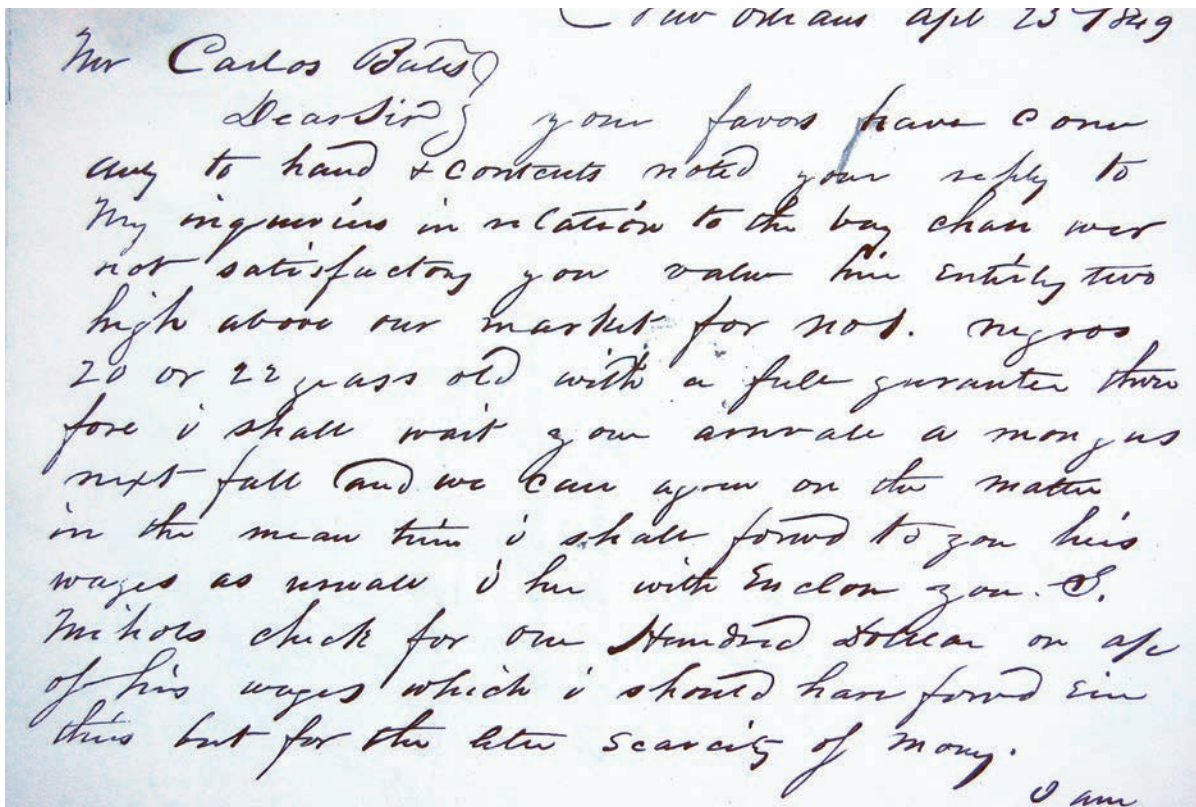 New Orleans Apl 23 1849
Mr Carlos Bates
Dear Sir your favors have come
to hand & contents noted your reply to
My inqueries in relation to the boy wer
not satisfactory you value him entirly two
high above our market for no 1. negros
20 or 22 years old with a full gurantee there
fore i shall wait your arrivale a mong us
next fall and we can agree on the matter
in the mean time i shall forwd to you his
wages as usuall i her with Enclose you S.
check for one Hundred Dollar on a/c
of his wages which i should have forwd
this but for the late Scarcity of Mony.
I am